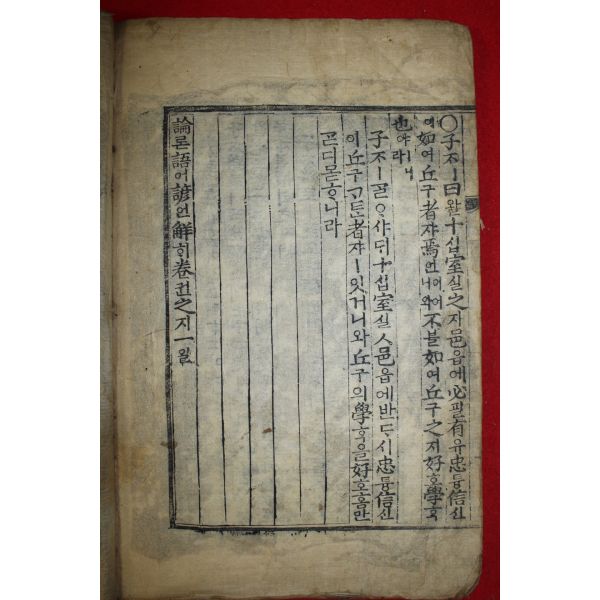 ○子ᄌᆞㅣ曰왈十십室실之지邑읍에必필有유忠튱信신
이如여丘구者쟈焉언이어니와不블如여丘구之지好호學ᄒᆞᆨ
也야ㅣ니라
子ᄌᆞㅣᄀᆞᆯᄋᆞ샤ᄃᆡ十십室실人邑읍에반ᄃᆞ시忠튱信신
이丘구ᄀᆞᄐᆞᆫ者쟈ㅣ잇거니와丘구의學ᄒᆞᆨ을好호홈만
ᄀᆞᆮ디몯ᄒᆞ니라
論론語어諺언解ᄒᆡ卷권之지一일